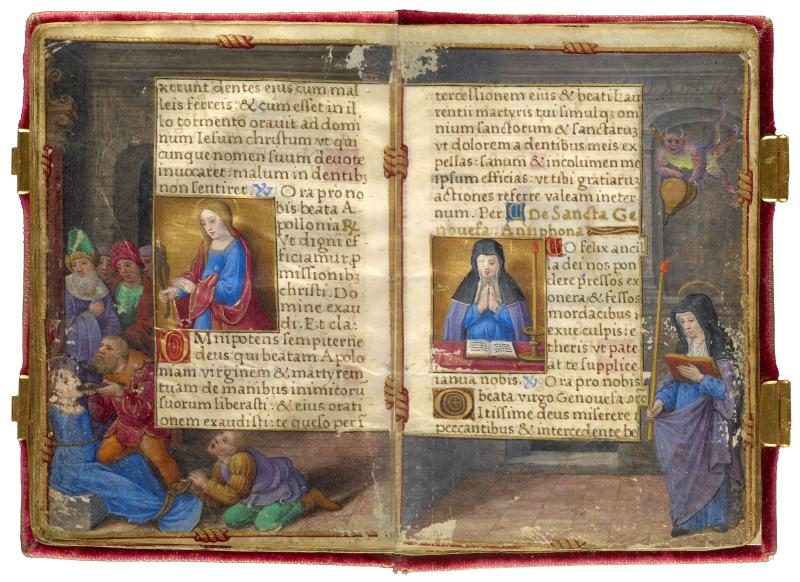 xerunt dentes eius cum mal
leis ferreis: & cum esset in il
lo tormento orauit ad domi
num Iesum christum vt qui
cunque nomen suum deuote
inuocaret: malum in dentib
non sentiret. Ora pro no
bis beata A
pollonia
Vt digni ef
ficiamur p
missionib
christi. Do
mine exau
di. Et cla:
OMnipotens sempiterne
deus qui beatam Apolo
niam virginem & martyrem
tuam de manibus inimicorū
suorum liberasti: & eius orati
onem exaudisti: te queso per i
tercessionem eius & beati Lau
rentii martyris tui simulq; om
nium sanctorum & sanctarum
vt dolorem a dentibus meis ex
pellas: sanum & incolumen me
ipsum efficias: vt tibi gratiarum
actiones referre valeam in eter
num. Per De Sancta Ge
nouefa. Antiphona
O felix ancil
la dei nos pon
dere pressos ex
onera, & fessos
mordacibus
exue culpis: e
theris vt pate
at te supplice
ianua nobis. Ora pro nobis
beata virgo Genouefa
itissime deus miserere
peccantibus & intercedente be